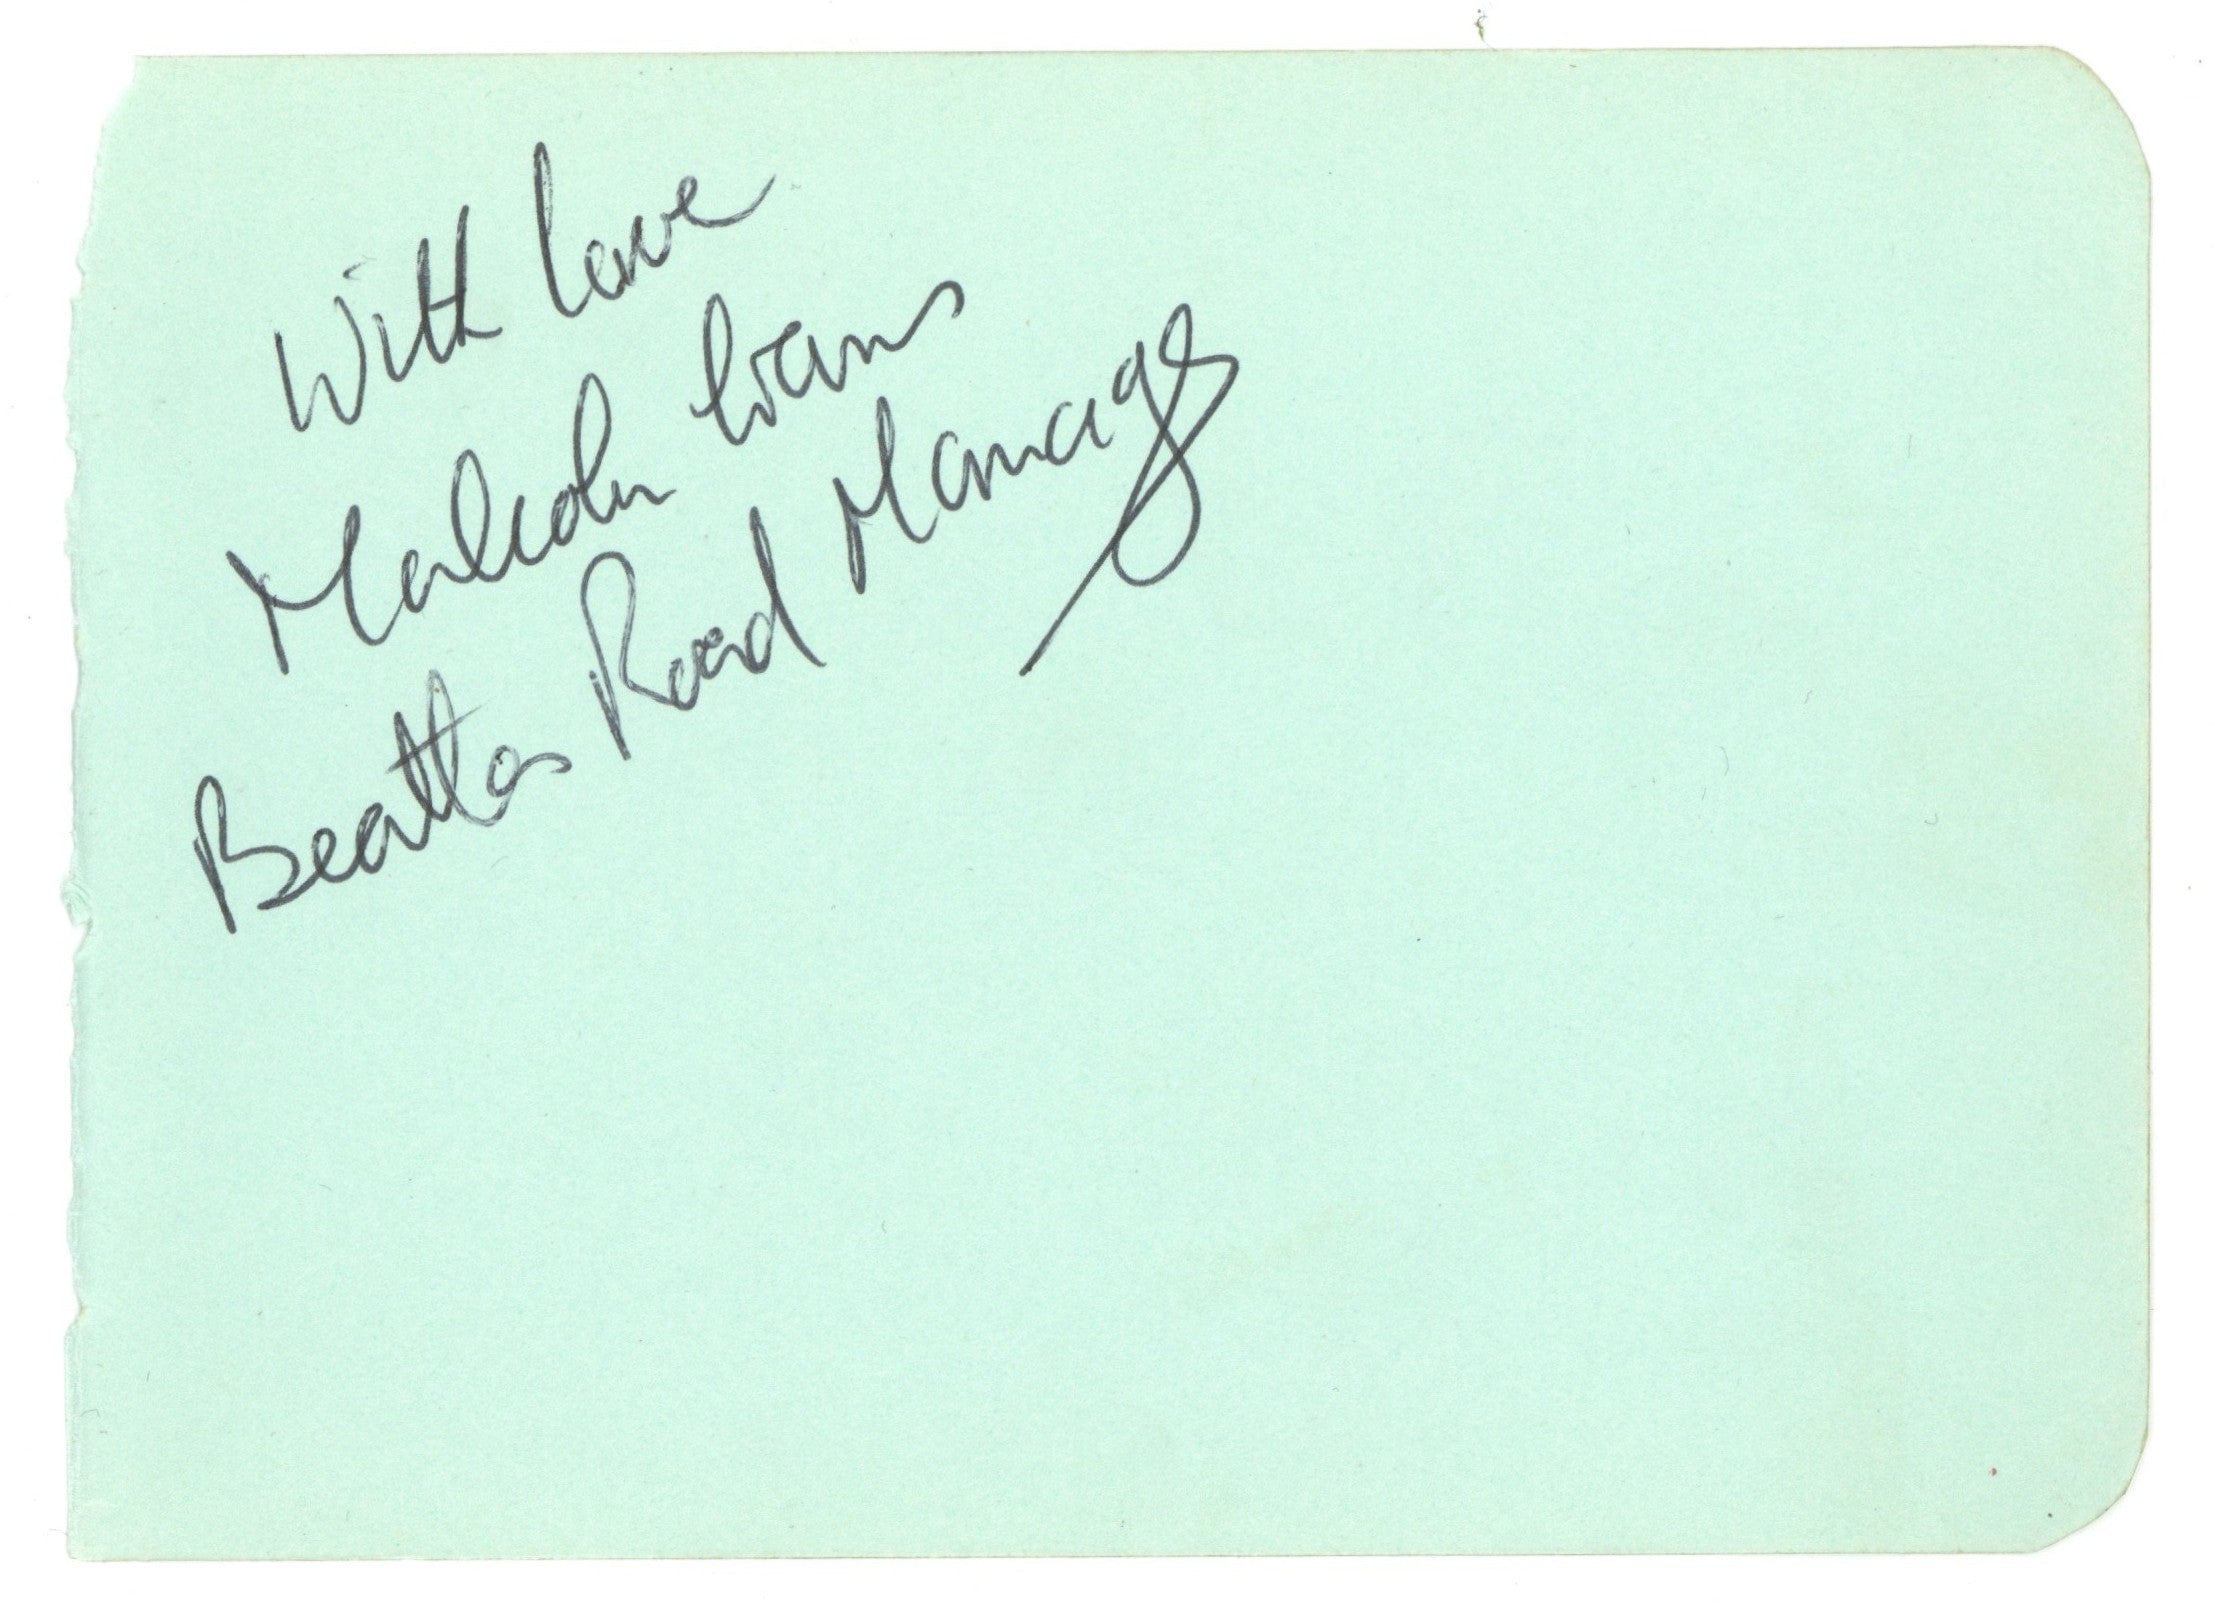 With love
Malcolm Evans
Beatles Road Manager